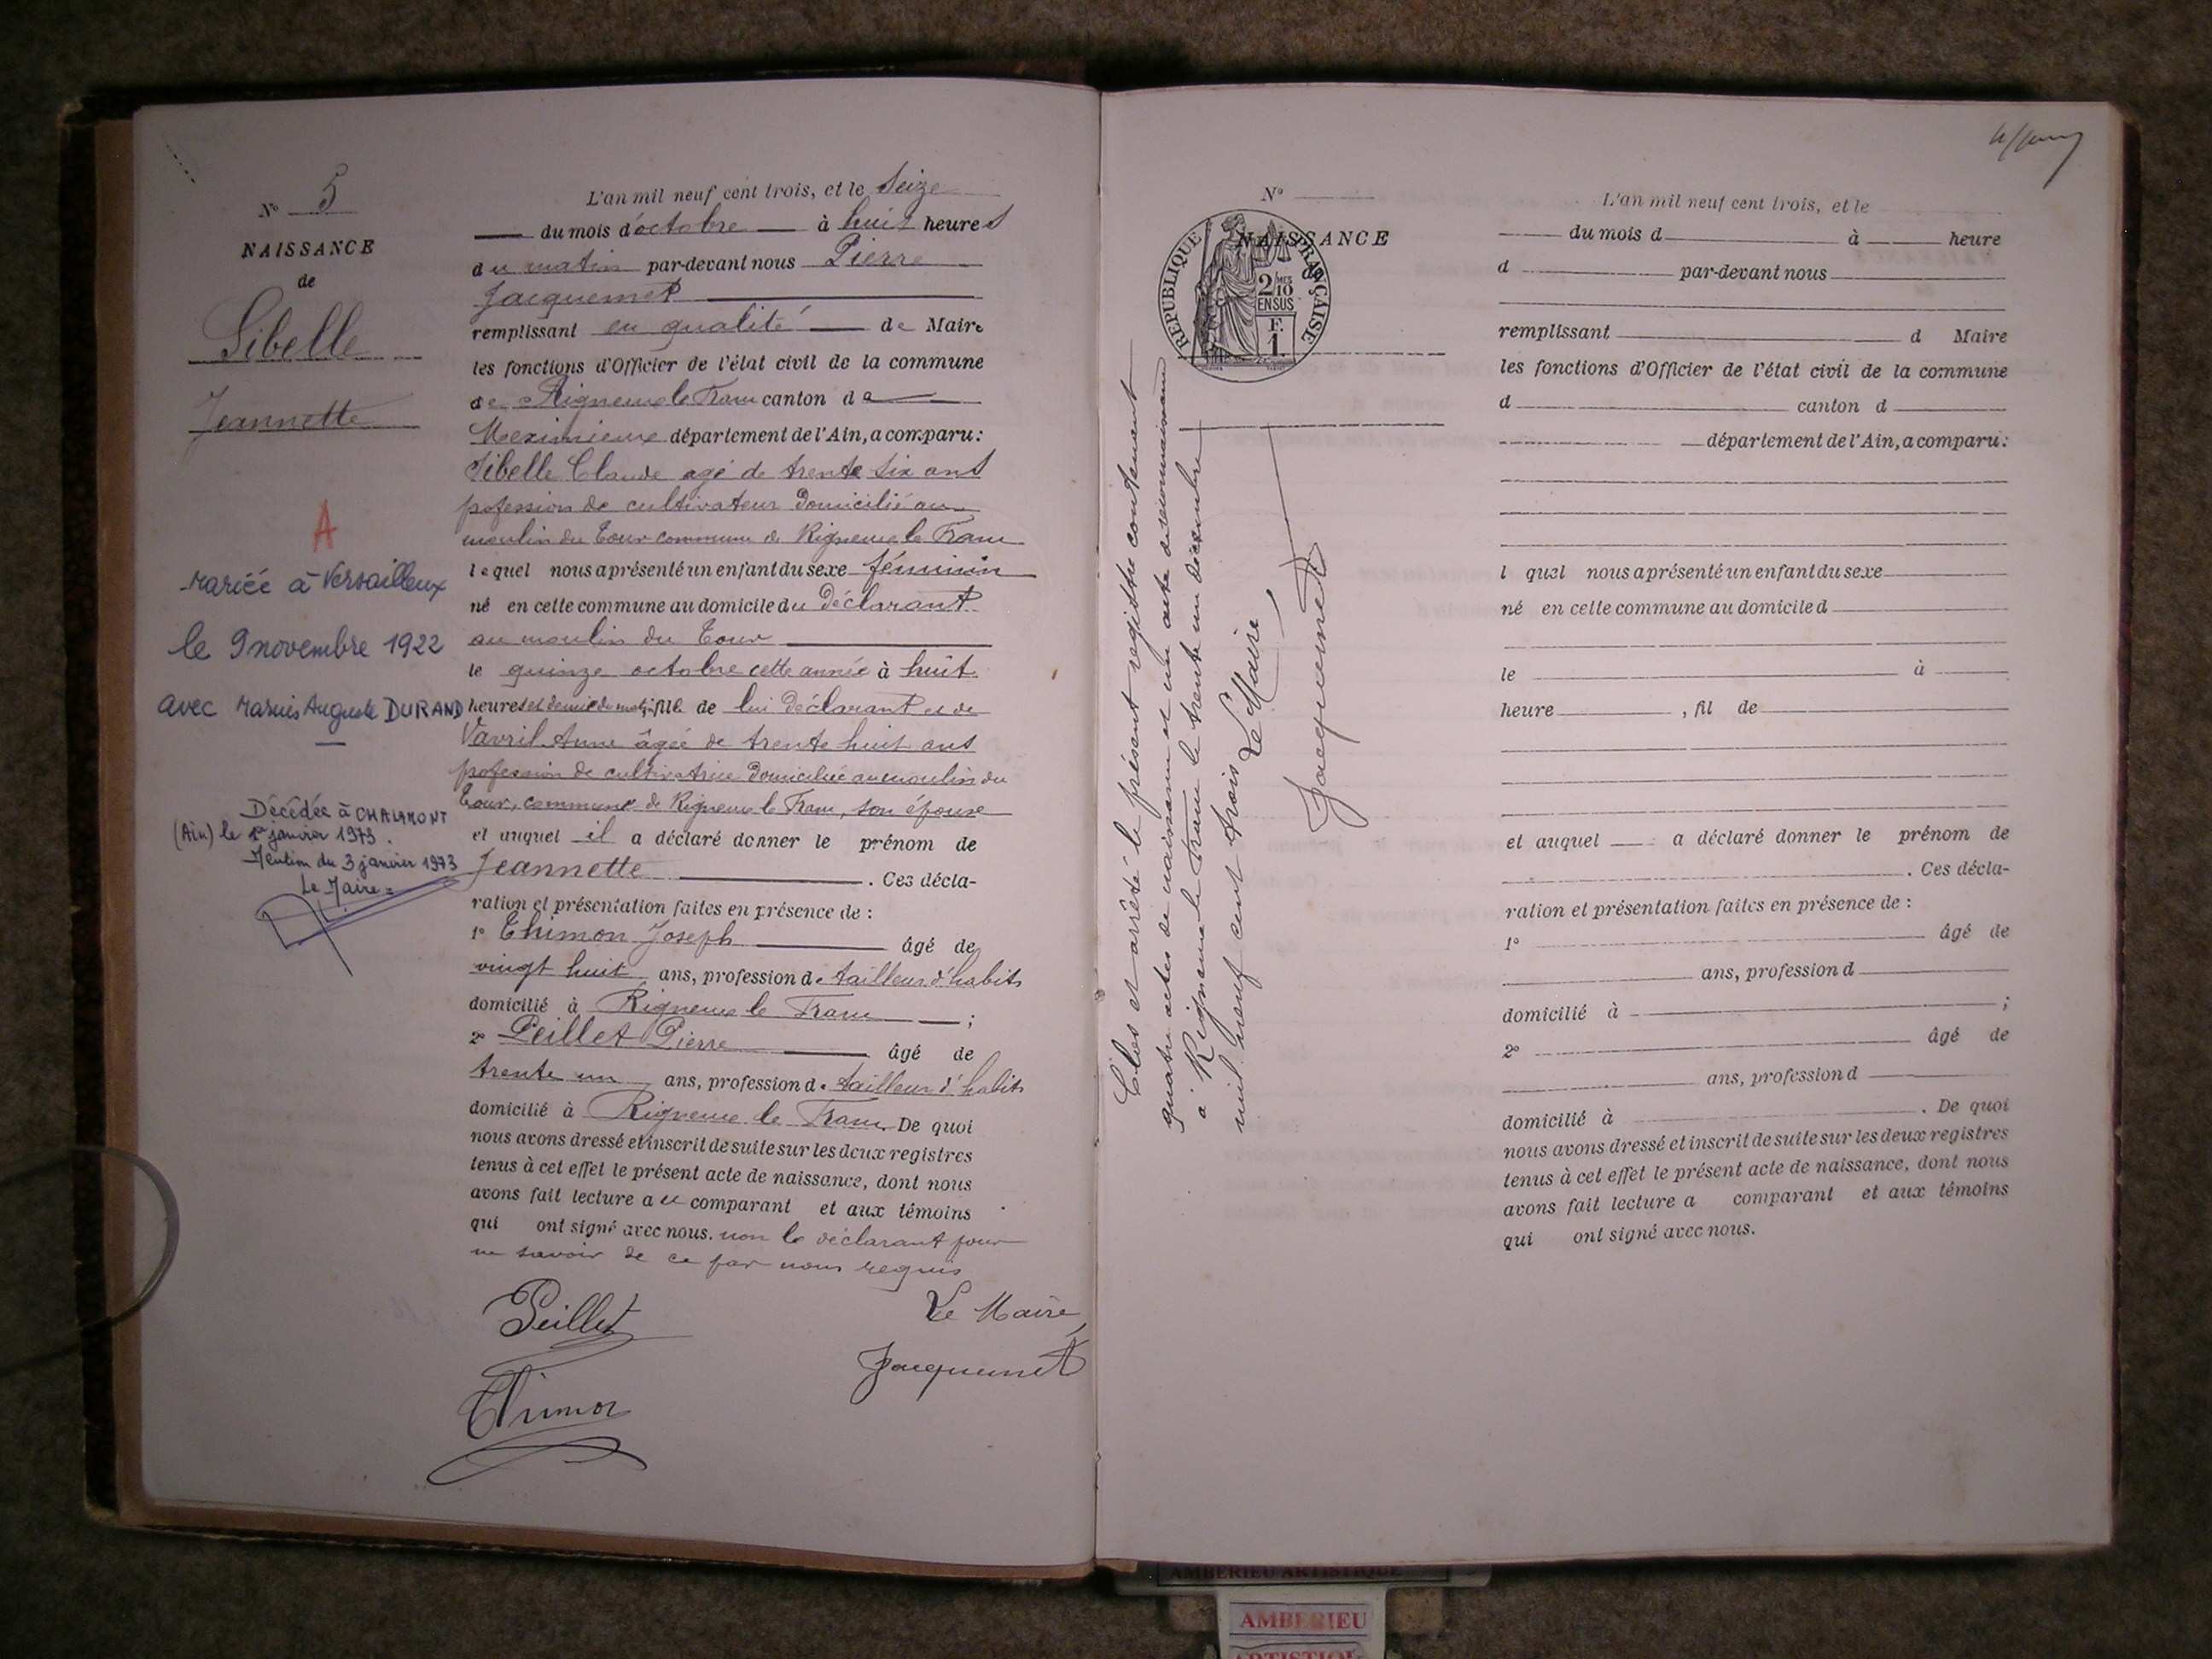 N° 5
NAISSANCE
de
Sibelle
Jeannette
A
Mariée à Versailleux
le 9 novembre 1922
avec Marius Auguste DURAND
Décédée à CHALAMONT
(Ain) le 1er janvier 1973.
Mention du 3 janvier 1973
Le Maire =
L'an mil neuf cent trois, et le Seize
du mois d'octobre à huit heures
du matin par-devant nous Pierre
Jacquemet
remplissant en qualité de Maire
les fonctions d'Officier de l'état civil de la commune
de Rigneux le Franc canton de
Meximieux département de l'Ain, a comparu :
Sibelle Claude agé de trente six ans
profession de cultivateur domicilié au
moulin du Tour commune de Rigneux le Franc
lequel nous a présenté un enfant du sexe féminin
né en cette commune au domicile du déclarant
au moulin du Tour
le quinze octobre cette année à huit
heures et demie du matin, fille de lui déclarant et de
Vavril Anne âgée de trente huit ans
profession de cultivatrice domiciliée au moulin du
Tour, commune de Rigneux le Franc, son épouse
et auquel il a déclaré donner le prénom de
Jeannette . Ces décla-
ration et présentation faites en présence de :
1° Thimon Joseph âgé de
vingt huit ans, profession de tailleur d'habits
domicilié à Rigneux le Franc ;
2° Peillet Pierre âgé de
trente un ans, profession de tailleur d'habits
domicilié à Rigneux le Franc. De quoi
nous avons dressé et inscrit de suite sur les deux registres
tenus à cet effet le présent acte de naissance, dont nous
avons fait lecture au comparant et aux témoins
qui ont signé avec nous. non le déclarant pour
ne savoir de ce par nous requis
Peillet
Le Maire,
Jacquemet
Thimon
N°
NAISSANCE
de
REPUBLIQUE FRANÇAISE
2/10 MES
EN SUS
F.
1.
Clos et arrêté le présent registre contenant
quatre actes de naissance et un acte de reconnaissance
à Rigneux le Franc le trente un décembre
mil neuf cent trois Le Maire,
Jacquemet
L'an mil neuf cent trois, et le
du mois d à heure
d par-devant nous
remplissant d Maire
les fonctions d'Officier de l'état civil de la commune
d canton d
département de l'Ain, a comparu :
l quel nous a présenté un enfant du sexe
né en cette commune au domicile d
le à
heure , fil de
et auquel a déclaré donner le prénom de
. Ces décla-
ration et présentation faites en présence de :
1° âgé de
ans, profession d
domicilié à ;
2° âgé de
ans, profession d
domicilié à . De quoi
nous avons dressé et inscrit de suite sur les deux registres
tenus à cet effet le présent acte de naissance, dont nous
avons fait lecture a comparant et aux témoins
qui ont signé avec nous.
AMBERIEU ARTISTIQUE
AMBERIEU